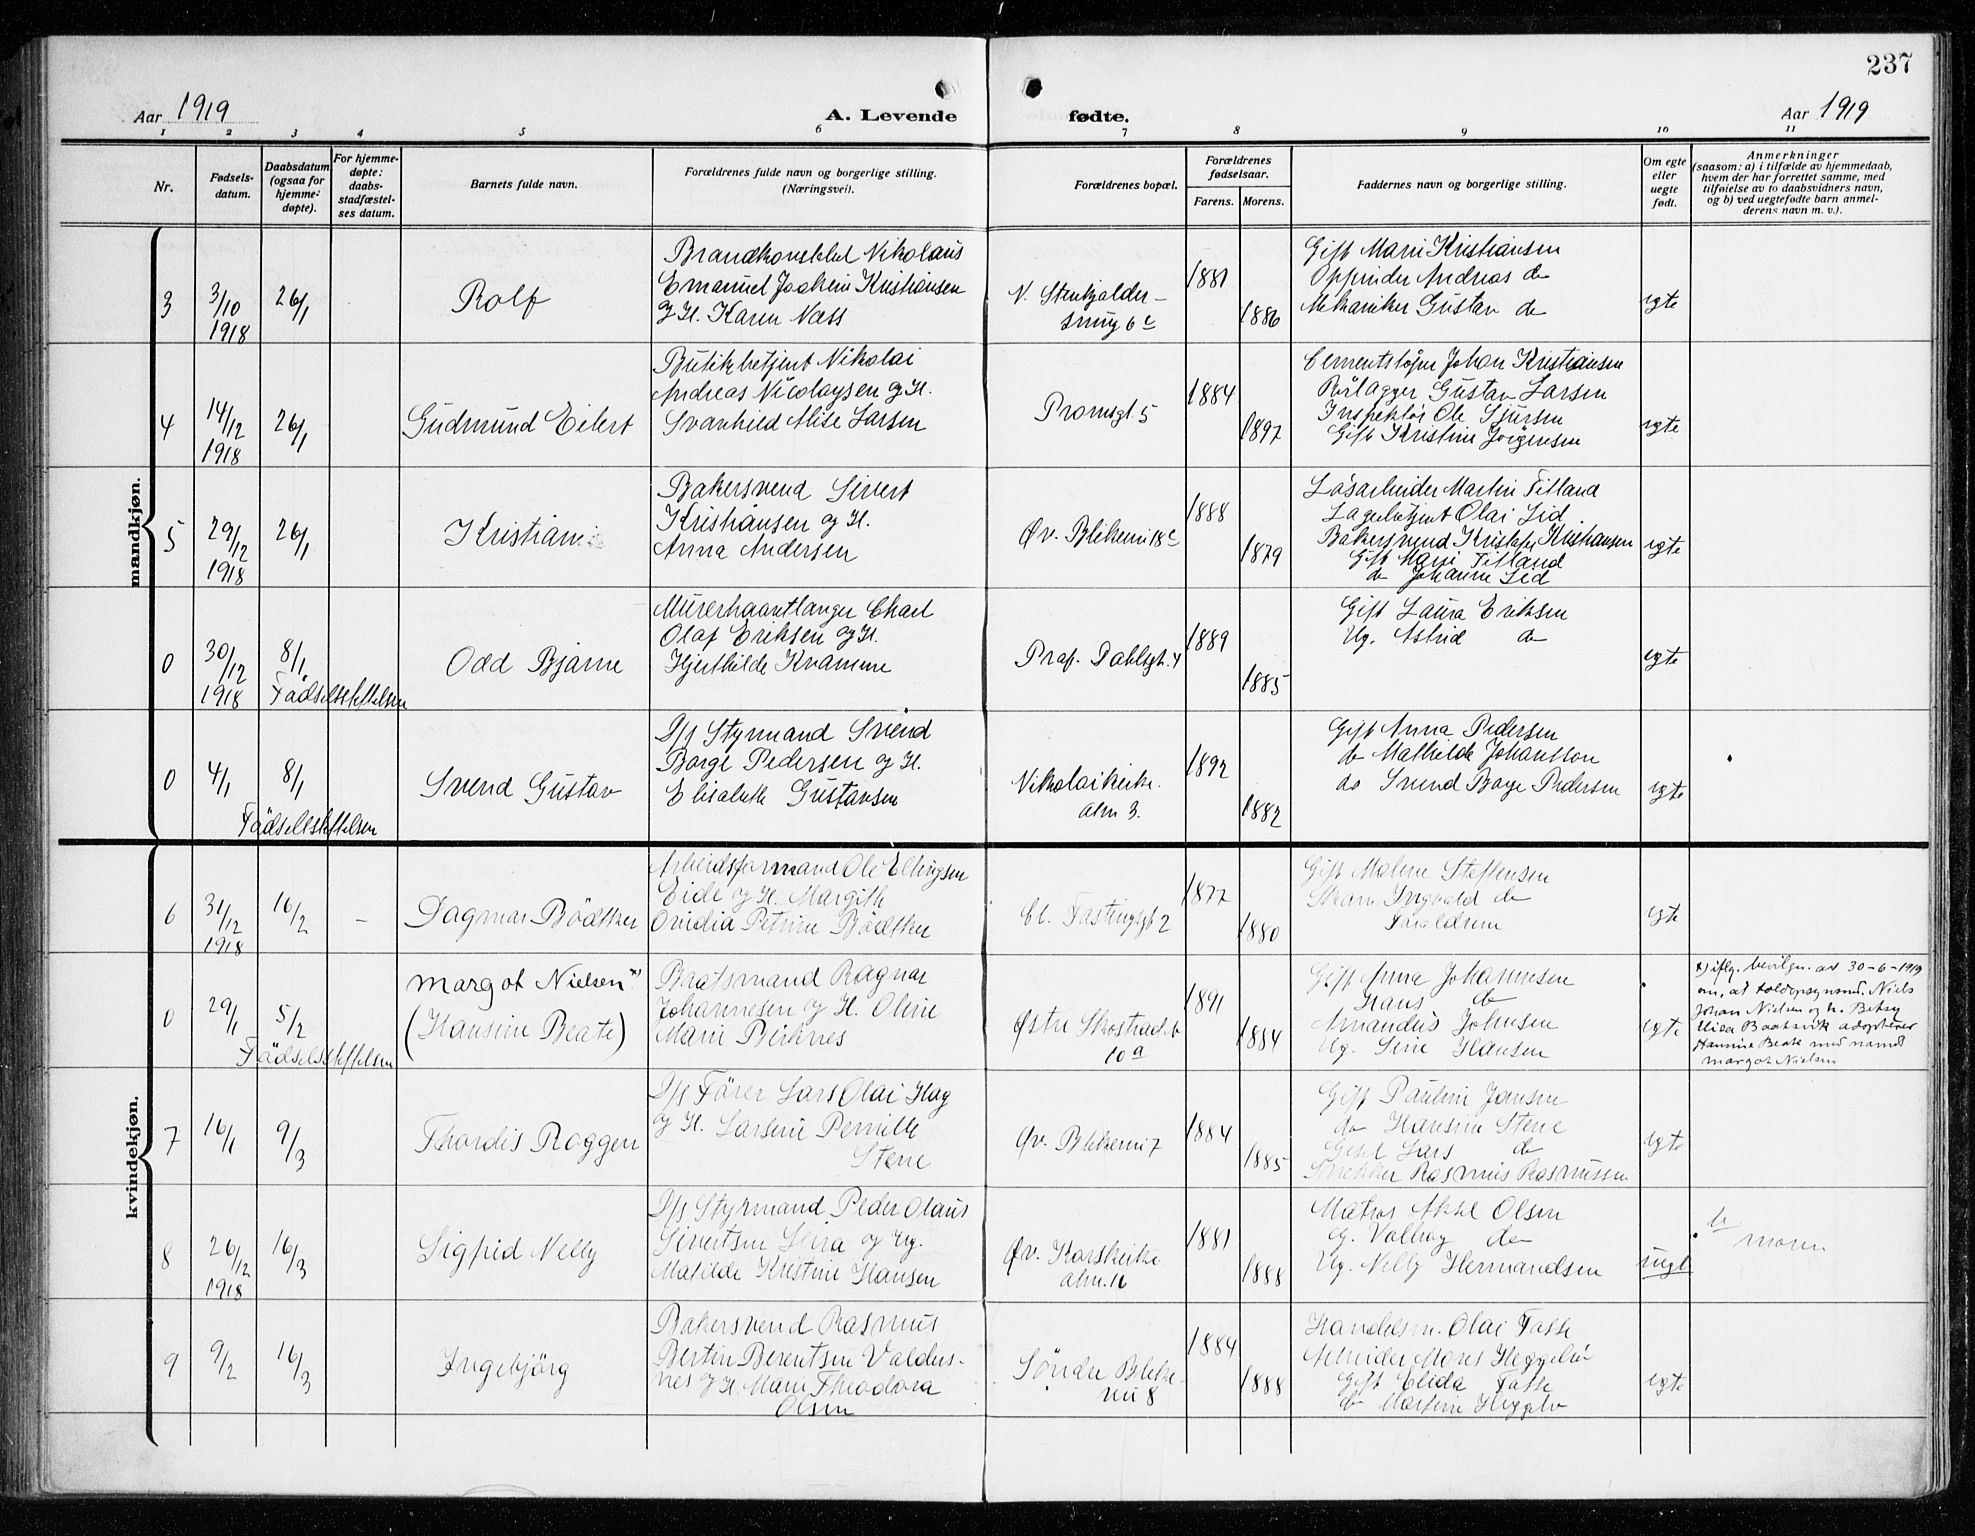 237
Aar 1919
A. Levende fødte.
Aar 1919
1 2 3 4 5 6 7 8 9 10 11
Nr.
Fødsels-
datum.
Daabsdatum
(ogsaa for
hjemme-
døpte).
For hjemme-
døpte:
daabs-
stadfæstel-
ses datum.
Barnets fulde navn.
Forældrenes fulde navn og borgerlige stilling.
(Næringsvei).
Forældrenes bopæl.
Forældrenes
fødselsaar.
Farens. Morens.
Faddernes navn og borgerlige stilling.
Om egte
eller
uegte
født.
Anmerkninger
(saasom: a) i tilfælde av hjemmedaab,
hvem der har forrettet samme, med
tilføielse av to daabsvidners navn,
og b) ved uegtefødte barn anmel-
derens navn m. v.).
mandkjøn.
3
3/10
1918
26/1
Rolf
Brandkonstabel Nikolaus
Emanuel Joakim Kristiansen
og H. Karen Næss
N. Stenkjelder-
smug 6c
1881
1886
Gift Marie Kristiansen
Oppinder Andreas do
Mekaniker Gustav do
egte
4
14/12
1918
26/1
Gudmund Eilert
Butikbetjent Nikolai
Andreas Nicolaysen og H.
Svanhild Alise Larsen
Promsgt 5
1884
1897
Cementstøper Johan Kristiansen
Rørlægger Gustav Larsen
Inspektør Ole Sjursen
Gift Kristine Jørgensen
egte
5
29/12
1918
26/1
Kristian
Bakersvend Sivert
Kristiansen og H.
Anna Andersen
Øv. Blekevei 18c
1888
1879
Løsarbeider Martin Titland
Lagerbetjent Olai Lid
Bakersvend Kristian Kristiansen
Gift Marie Titland
do Johanne Lid
egte
0
30/12
1918
8/1
Fødselsstiftelsen
Odd Bjarne
Murerhaantlanger Charl
Olaf Eriksen og H.
Hjerthilde Kvamme
Prof. Dahlsgt. 4
1889
1885
Gift Laura Eriksen
Ug. Astrid do
egte
0
4/1
8/1
Fødselsstiftelsen
Svend Gustav
D/s Styrmand Svend
Borge Pedersen og H.
Elisabeth Gustavsen
Nikolaikirke-
alm 3.
1892
1882
Gift Anna Pedersen
do Mathilde Johansson
do Svend Borge Pedersen
egte
kvindekjøn.
6
31/12
1918
16/2
–
Dagmar Bödtker
Arbeidsformand Ole Ellingsen
Eide og H. Margith
Ovidia Petrine Bödtker
Cl. Fastingsgt 2
1877
1880
Gift Malene Steffensen
Ingvald do
egte
0
29/1
5/2
Fødselsstiftelsen
Margot Nielsen x)
(Hansine Beate)
Baatsmand Ragnar
Johannesen og H. Oline
Marie Birknes
Østre Skostræde
10a
1891
1884
Gift Anna Johannesen
Hans do
Amandus Johnsen
Ug. Sine Hansen
egte
x) iflg. bevilgn. av 30-6-1919
om, at toldopsynsmd. Niels
Johan Nielsen og h. Betzy
Elida Baatsvik adopterer
Hansine Beate med navnet
Margot Nielsen
7
16/1
9/3
Thordis Roggen
D/s Fører Lars Olai Hag
og H. Larsine Pernille
Stene
Øv. Blekevei 7
1884
1885
Gift Pauline Jansen
do Hansine Stene
Gift Lars do
Snekker Rasmus Rasmussen
egte
8
26/12
1918
16/3
Sigfrid Nelly
D/s Styrmand Peder Olaus
Sivertsen Leira og Ug.
Matilde Kristine Hansen
Øv. Korskirke
alm. 16
1881
1888
Matros Aksel Olsen
G. Valborg do
Ug. Nelly Hermandsen
uegt
b
moren
9
9/2
16/3
Ingebjörg
Bakersvend Rasmus
Bertin Berentsen Valders-
nes og H. Marie Theodora
Olsen
Söndre Bleke-
vei 8
1884
1888
Handelsm. Olai Fasse
Arbeider Mons Heggelv
Gift Elida Fasse
do Martine Heggelv
egte